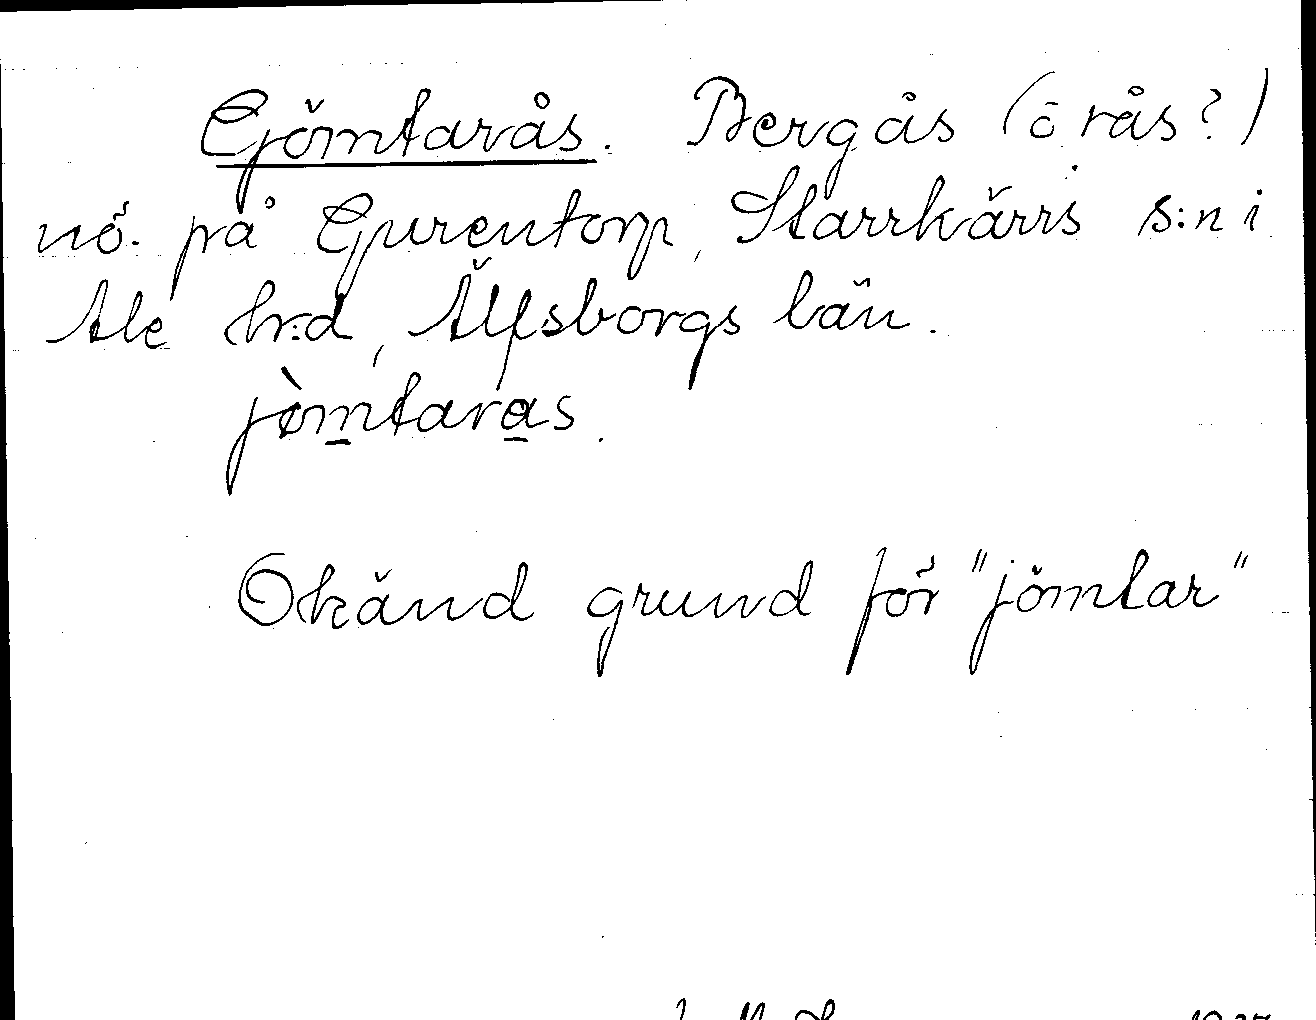 Gjömtarås. Bergås (ō rås?)
nö. på Gurentorp, Starrkärrs s:n i
Ale hrd, Älfsborgs län.
jòmtaras.
Okänd grund för "jömtar"